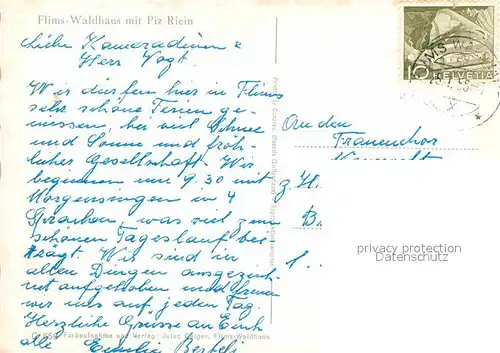 Flims-Waldhaus mit Piz Riein
Liebe Kameradinnen &
Herr Vogt.
Wir dürfen hier in Flims
sehr schöne Ferien ge-
niessen bei viel Schnee
und Sonne und fröh-
licher Gesellschaft. Wir
beginnen um 9.30 mit
Morgensingen in 4
Sprachen, was viel zum
schönen Tageslauf bei-
trägt. Wir sind in
allen Dingen ausgezeich-
net aufgehoben und freuen
wir uns auf jeden Tag.
Herzliche Grüsse an Euch
alle
10
HELVETIA
An den
Frauenchor
z. H.
B.
privacy protection
Datenschutz
Farbaufnahme und Verlag Jules Geiger, Flims-Waldhaus